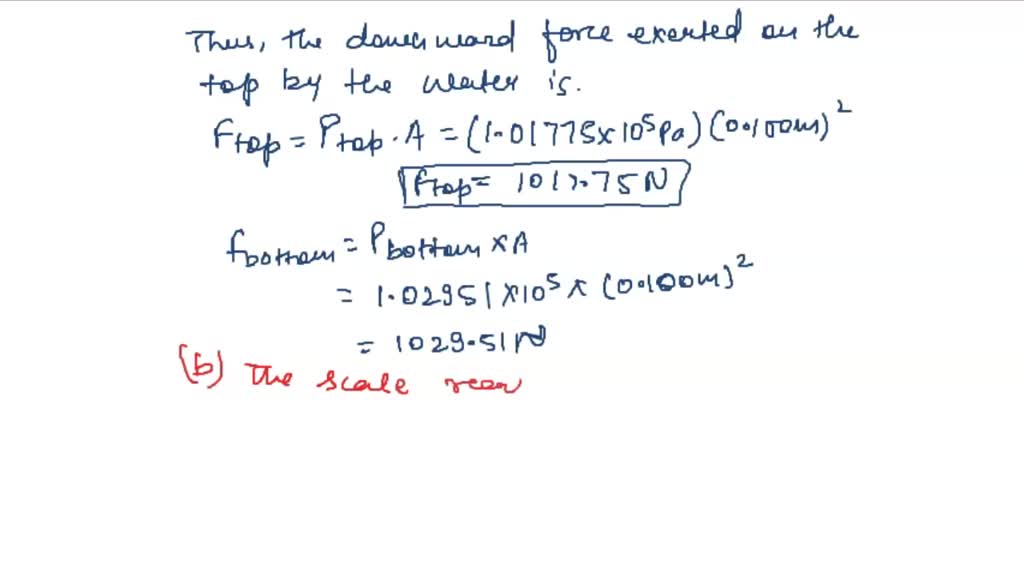 Thus, the downward force exerted on the
top by the water is.
Ftop = Ptop . A = (1.01775×10⁵Pa) (0.100m)²
Ftop = 1017.75N
fbottom = Pbottom × A
= 1.02951×10⁵ × (0.100m)²
= 1029.51N
(b) The scale rear